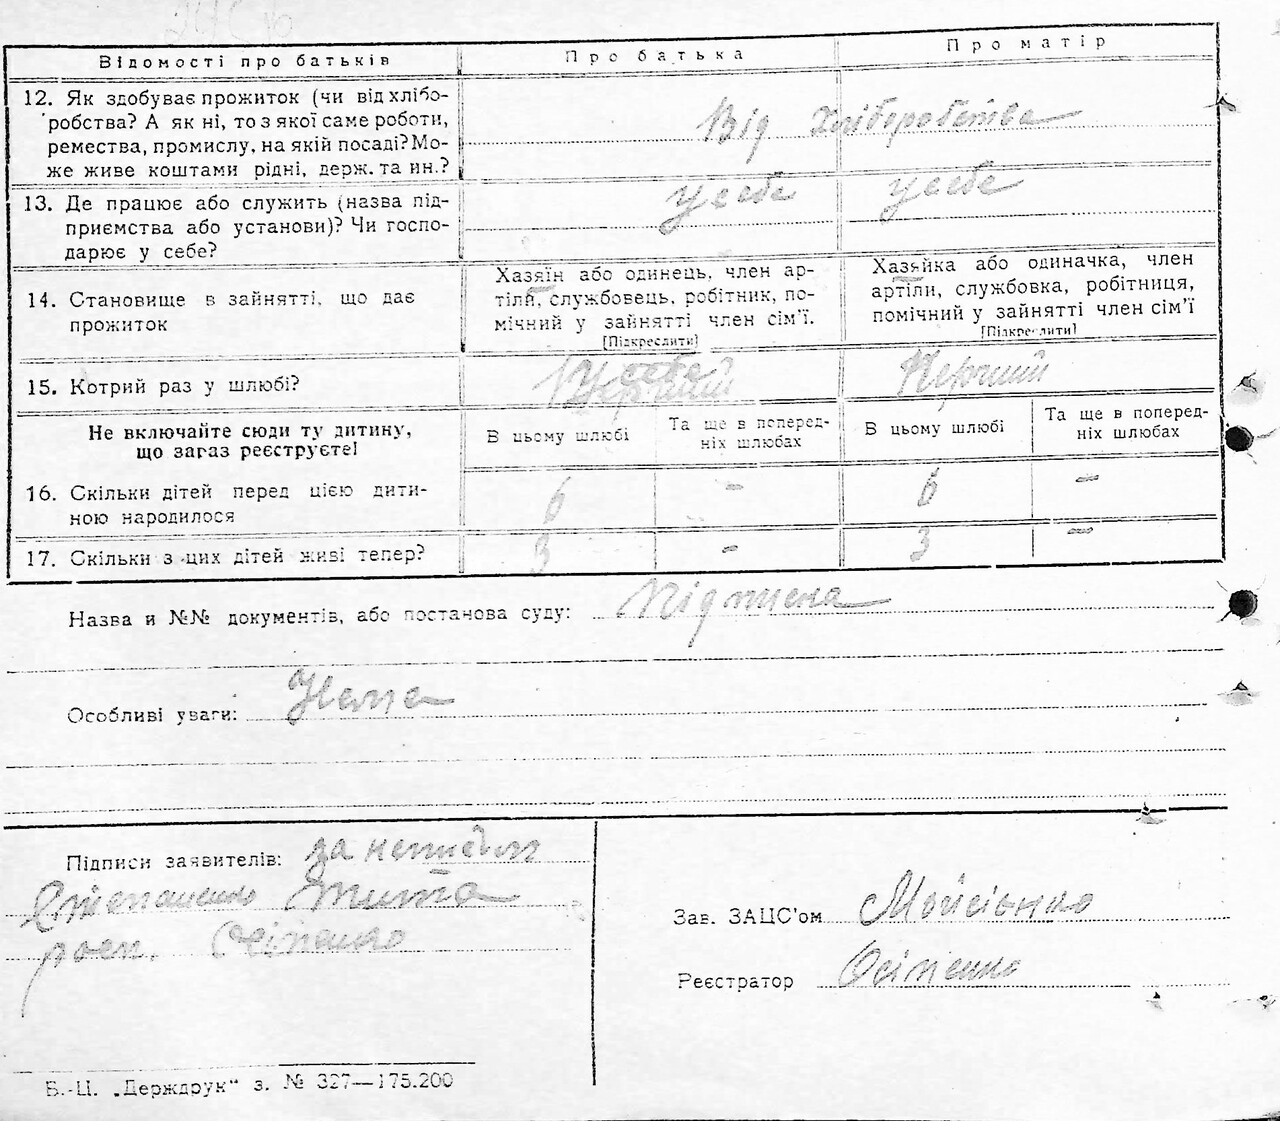 Відомості про батьків Про батька Про матір
12. Як здобуває прожиток (чи від хлібо-
робства? А як ні, то з якої саме роботи,
ремества, промислу, на якій посаді? Мо-
же живе коштами рідні, держ. та ин.?
Від хліборобства
13. Де працює або служить (назва під-
приємства або установи)? Чи госпо-
дарює у себе?
у себе у себе
14. Становище в зайнятті, що дає
прожиток
Хазяїн або одинець, член ар-
тіли, службовець, робітник, по-
мічний у зайнятті член сім'ї.
[Підкреслити]
Хазяйка або одиначка, член
артіли, службовка, робітниця,
помічний у зайнятті член сім'ї
[Підкреслити]
15. Котрий раз у шлюбі?
Перший Перший
Не включайте сюди ту дитину,
що зараз реєструєте!
В цьому шлюбі
Та ще в поперед-
ніх шлюбах
В цьому шлюбі
Та ще в поперед-
ніх шлюбах
16. Скільки дітей перед цією дити-
ною народилося
6 - 6 -
17. Скільки з цих дітей живі тепер? 3 - 3 -
Назва и №№ документів, або постанова суду:
Особливі уваги: Нема
Підписи заявителів: за неписьм
Степаненко Тита
росп. Осіпенко
Зав. ЗАЦС'ом Мойсіенко
Реєстратор Осіпенко
Б.-Ц. „Держдрук" з. № 327—175.200